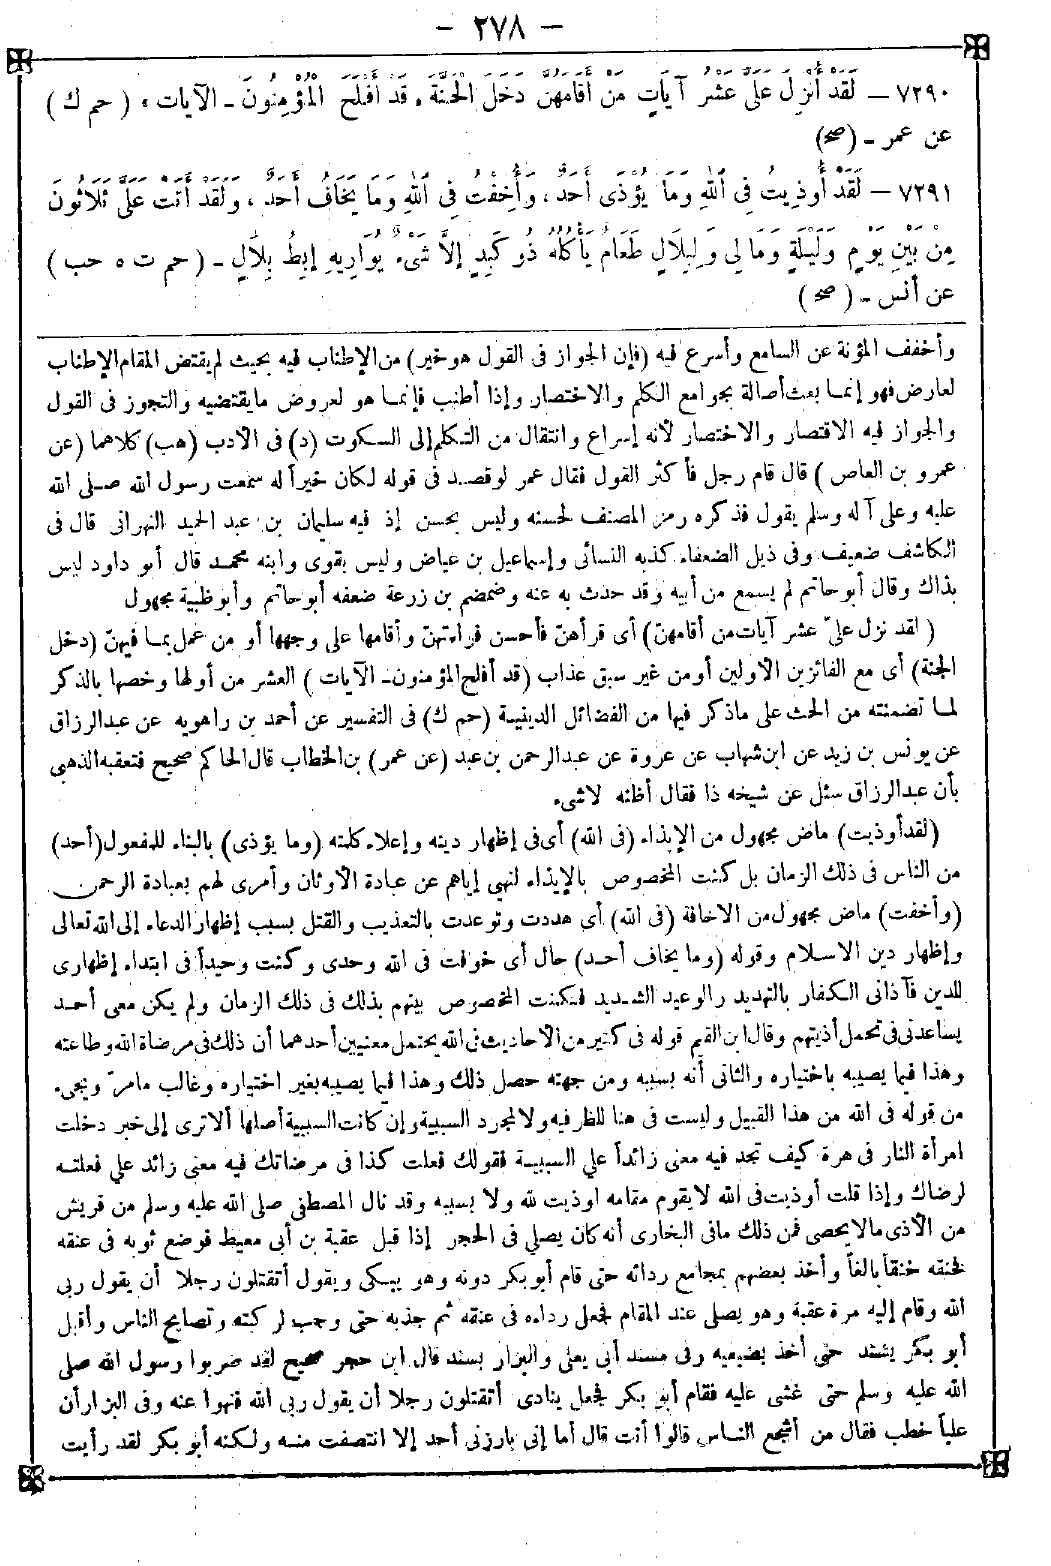 — ٢٧٨ —
٧٢٩٠ — لَقَدْ أُنْزِلَ عَلَيَّ عَشْرُ آيَاتٍ مَنْ أَقَامَهُنَّ دَخَلَ الْجَنَّةَ ، قَدْ أَفْلَحَ الْمُؤْمِنُونَ ـ الآيات ، ( حم ك )
عن عمر ـ (صح)
٧٢٩١ — لَقَدْ أُوذِيتُ فِى اللّٰهِ وَمَا يُؤْذَى أَحَدٌ ، وَأُخِفْتُ فِى اللّٰهِ وَمَا يَخَافُ أَحَدٌ ، وَلَقَدْ أَتَتْ عَلَيَّ ثَلَاثُونَ
مِنْ بَيْنِ يَوْمٍ وَلَيْلَةٍ وَمَا لِي وَلِبِلَالٍ طَعَامٌ يَأْكُلُهُ ذُو كَبِدٍ إلَّا شَىْءٌ يُوَارِيهِ إبِطُ بِلَالٍ ـ ( حم ت ه حب )
عن أنس ـ ( صح )
وأخفف المؤنة عن السامع وأسرع فيه (فإن الجواز فى القول هو خير) من الإطناب فيه بحيث لم يقتض المقام الإطناب
لعارض فهو إنما بعث أصالة بجوامع الكلم والاختصار وإذا أطنب فإنما هو لعروض ما يقتضيه والتجوز فى القول
والجواز فيه الاقتصار والاختصار لأنه إسراع وانتقال من التكلم إلى السكوت (د) فى الأدب (هب) كلاهما (عن
عمرو بن العاص ) قال قام رجل فأكثر القول فقال عمر لو قصد فى قوله لكان خيراً له سمعت رسول الله صلى الله
عليه وعلى آله وسلم يقول فذكره رمز المصنف لحسنه وليس بحسن إذ فيه سليمان بن عبد الحميد النهرانى قال فى
الكاشف ضعيف وفى ذيل الضعفاء كذبه النسائى وإسماعيل بن عياض وليس بقوى وابنه محمد قال أبو داود ليس
بذاك وقال أبو حاتم لم يسمع من أبيه وقد حدث به عنه وضمضم بن زرعة ضعفه أبو حاتم وأبو ظبية مجهول
( لقد نزل علىّ عشر آيات من أقامهنّ) أى قرأهنّ فأحسن قراءتهنّ وأقامها على وجهها أو من عمل بما فيهنّ (دخل
الجنة) أى مع الفائزين الأولين أو من غير سبق عذاب (قد أفلح المؤمنون ـ الآيات ) العشر من أولها وخصها بالذكر
لما تضمنته من الحث على ما ذكر فيها من الفضائل الدينية (حم ك) فى التفسير عن أحمد بن راهويه عن عبد الرزاق
عن يونس بن زيد عن ابن شهاب عن عروة عن عبد الرحمن بن عبد (عن عمر) بن الخطاب قال الحاكم صحيح فتعقبه الذهبى
بأن عبد الرزاق سئل عن شيخه ذا فقال أظنه لا شىء
(لقد أوذيت) ماض مجهول من الإيذاء (فى الله) أى فى إظهار دينه وإعلاء كلمته (وما يؤذى) بالبناء للمفعول (أحد)
من الناس فى ذلك الزمان بل كنت المخصوص بالإيذاء لنهى إياهم عن عبادة الأوثان وأمرى لهم بعبادة الرحمن
(وأخفت) ماض مجهول من الاخافة (فى الله) أى هددت وتوعدت بالتعذيب والقتل بسبب إظهار الدعاء إلى الله تعالى
وإظهار دين الاسلام وقوله (وما يخاف أحد) حال أى خوفت فى الله وحدى وكنت وحيداً فى ابتداء إظهارى
للدين فآذانى الكفار بالتهديد والوعيد الشديد فكنت المخصوص بينهم بذلك فى ذلك الزمان ولم يكن معى أحد
يساعدنى فى تحمل أذيتهم وقال ابن القيم قوله فى كثير من الأحاديث فى الله يحتمل معنيين أحدهما أن ذلك فى مرضاة الله وطاعته
وهذا فيما يصيبه باختياره والثانى أنه بسببه ومن جهته حصل ذلك وهذا فيما يصيبه بغير اختياره وغالب مامرّ ويجىء
من قوله فى الله من هذا القبيل وليست فى هنا للظرفيه ولا لمجرد السببية وإن كانت السببية أصلها ألا ترى إلى خبر دخلت
امرأة النار فى هرة كيف تجد فيه معنى زائداً علي السببية فقولك فعلت كذا فى مرضاتك فيه معنى زائد علي فعلته
لرضاك وإذا قلت أوذيت فى الله لا يقوم مقامه اوذيت لله ولا بسببه وقد نال المصطفى صلى الله عليه وسلم من قريش
من الأذى مالا يحصى فمن ذلك مافى البخارى أنه كان يصلي فى الحجر إذا قبل عقبة بن أبى معيط فوضع ثوبه فى عنقه
فخنقه خنقاً بالغاً وأخذ بعضهم بمجامع ردائه حتى قام أبو بكر دونه وهو يبكى ويقول أتقتلون رجلا أن يقول ربى
الله وقام إليه مرة عقبة وهو يصلى عند المقام فجعل رداءه فى عنقه ثم جذبه حتى وجب لركبته وتصايح الناس وأقبل
أبو بكر يشتد حتى أخذ بضبعيه وفى مسند أبى يعلى والبزار بسند قال ابن حجر صحيح لقد ضربوا رسول الله صلى
الله عليه وسلم حتى غشى عليه فقام أبو بكر فجعل ينادى أتقتلون رجلا أن يقول ربى الله فنهوا عنه وفى البزار أن
علياً خطب فقال من أشجع الناس قالوا أنت قال أما إنى بارزنى أحد إلا انتصفت منه ولكنه أبو بكر لقد رأيت